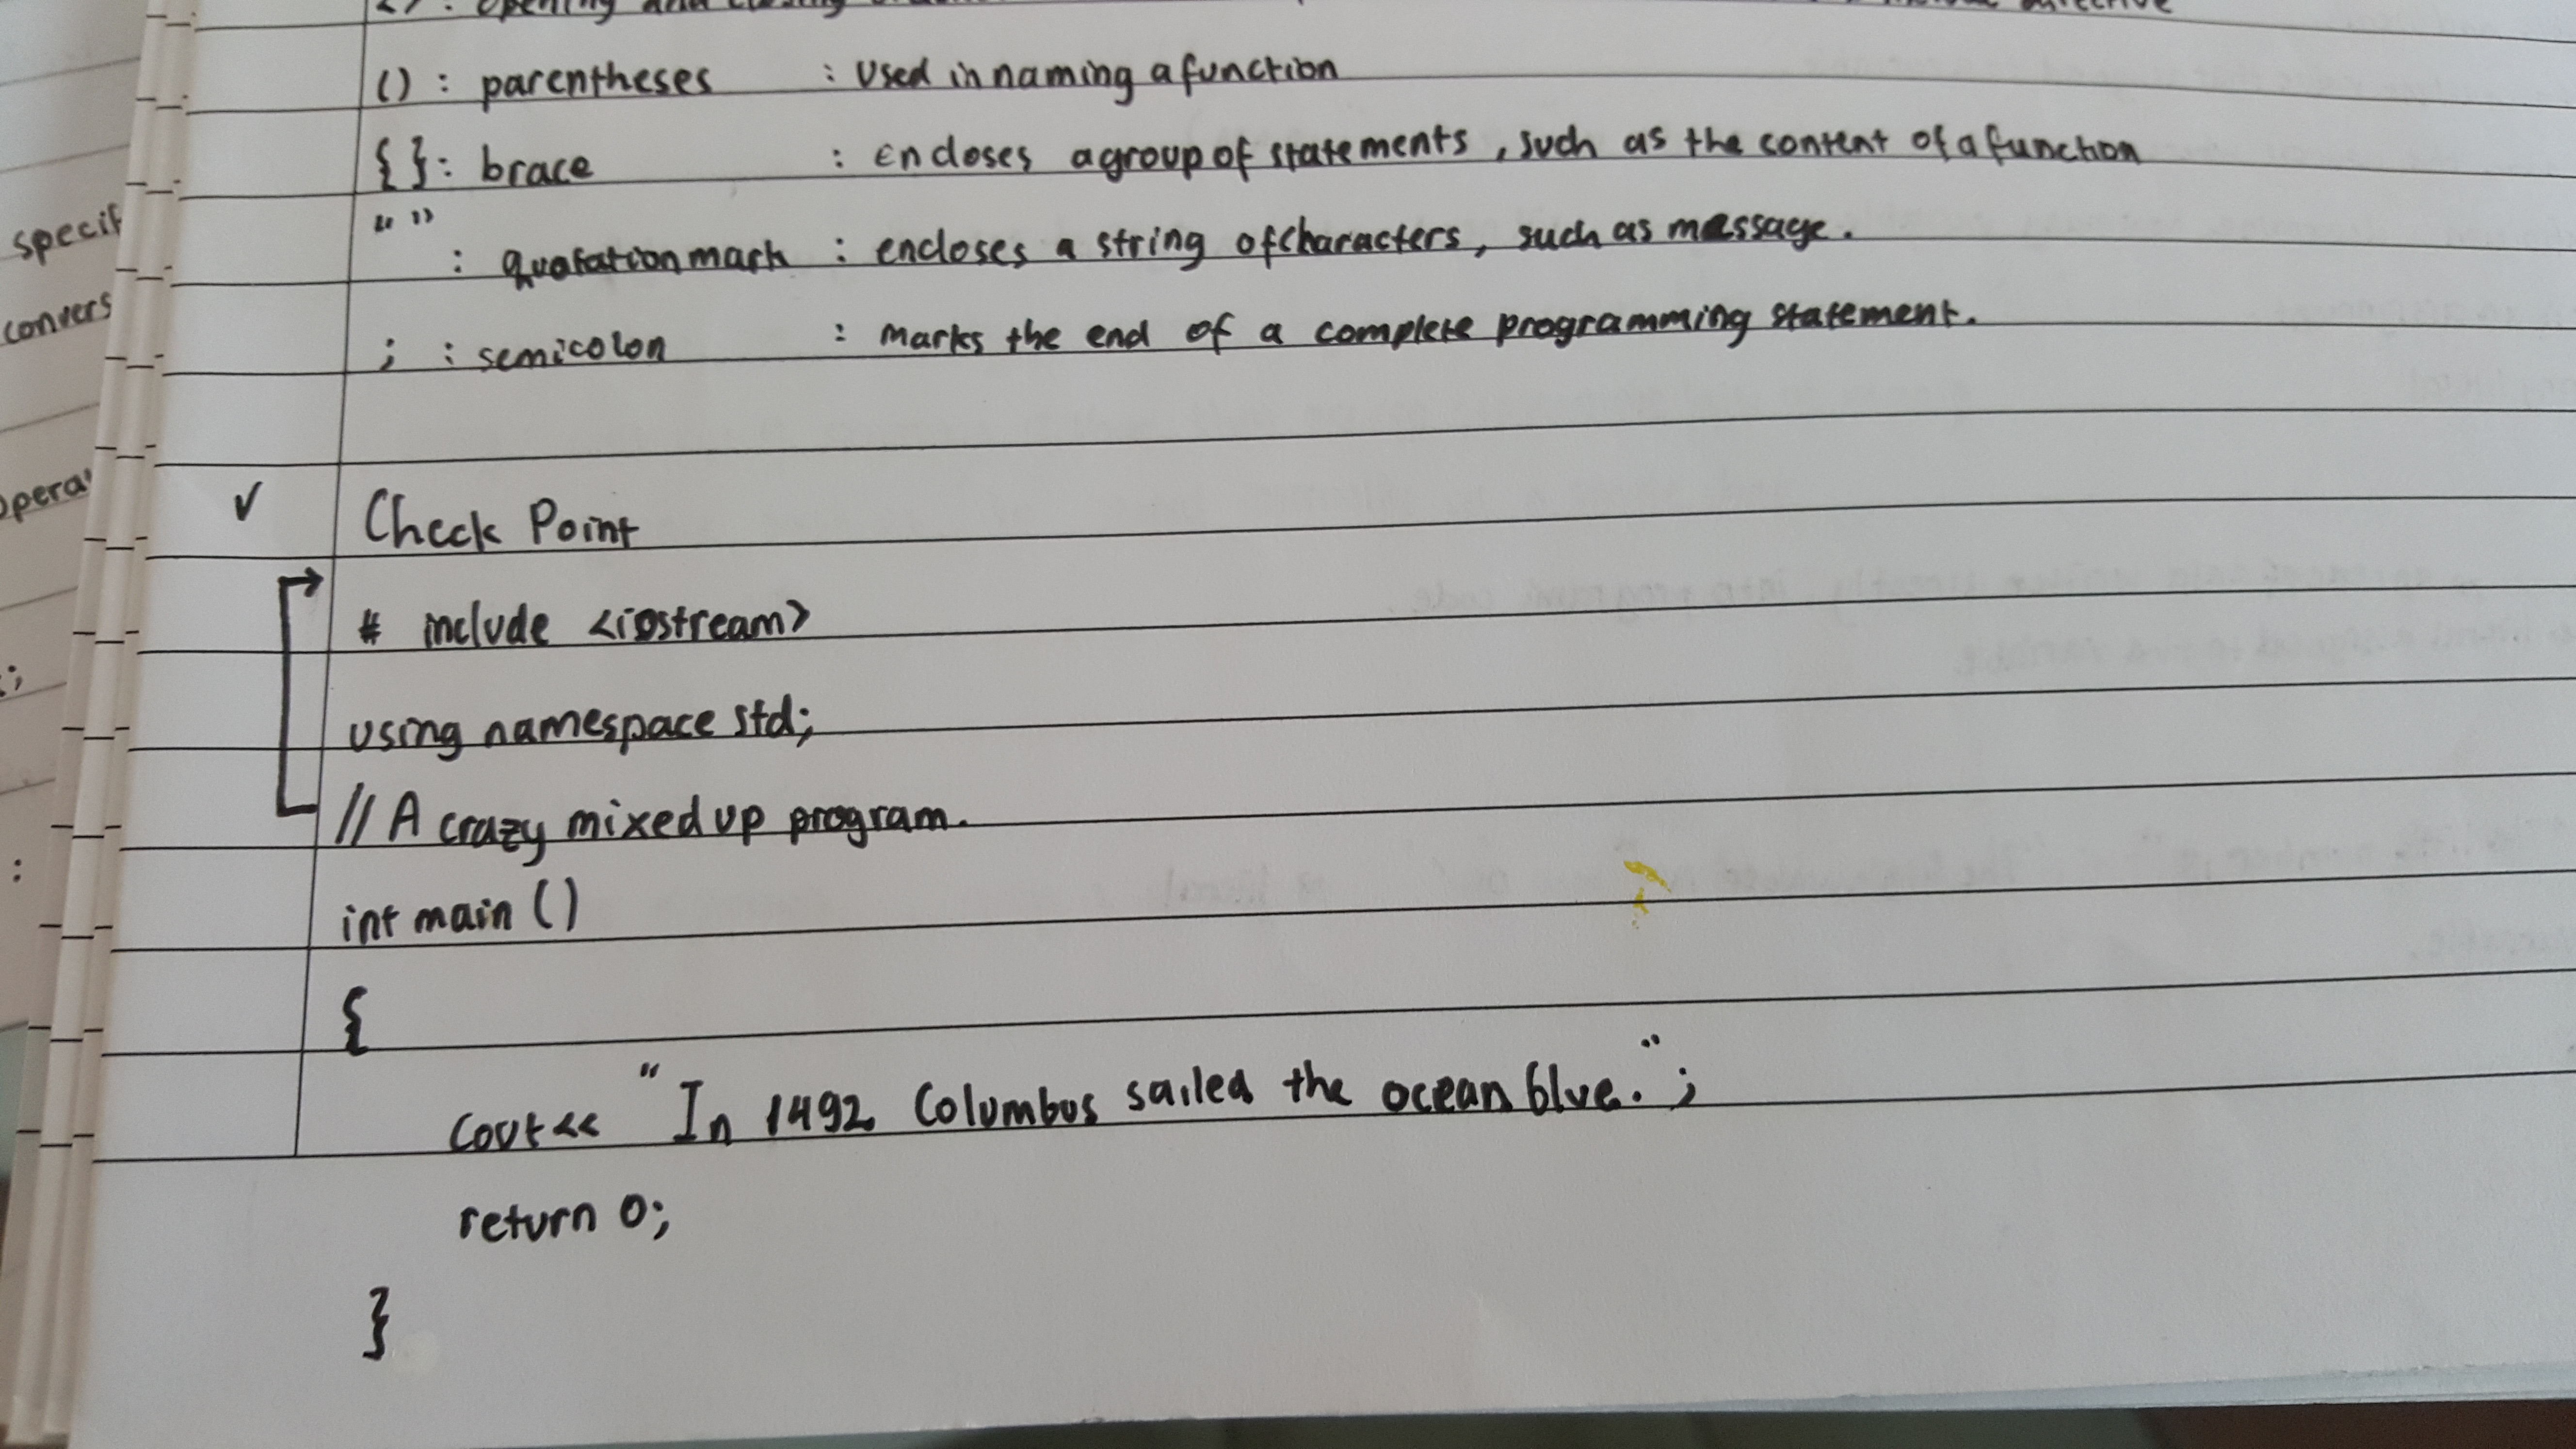 <> : opening and closing
directive
() : parentheses : Used in naming a function
{ } : brace : Encloses a group of statements, such as the content of a function
“ ” : quotation mark : encloses a string of characters, such as message.
; : semicolon : marks the end of a complete programming statement.
✓ Check Point
# include <iostream>
using namespace std;
// A crazy mixed up program.
int main ()
{
cout << "In 1492 Columbus sailed the ocean blue.";
return 0;
}
specif
convers
opera
;
: